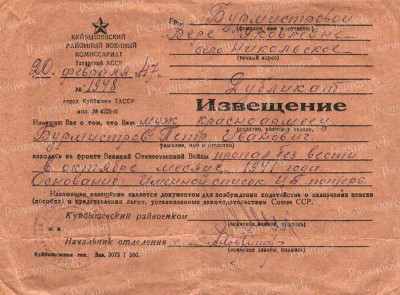 КУЙБЫШЕВСКИЙ
РАЙОННЫЙ ВОЕННЫЙ
КОМИССАРИАТ
Татарской АССР
20 февраля 47 г.
№ 1948
город Куйбышев ТАССР
Гр. Бурмистровой
(фамилия, имя и отчество)
Вере Яковлевне
село Никольское
(точный адрес)
Дубликат
Извещение
Извещаю Вас о том, что Ваш муж красноармеец
(родство, воинское звание,
Бурмистров Петр Иванович
фамилия, имя и отчество)
находясь на фронте Великой Отечественной Войны пропал без вести
в октябре месяце 1941 года
Основание: Именной список И.В. потерь.
Настоящее извещение является документом для возбуждения ходатайства о назначении пенсии
(пособия) и предоставления льгот, установленных законодательством Союза ССР.
Куйбышевский райвоенком
(воинское звание, подпись)
Начальник отделения
(воинское звание, подпись)
Куйбышевская тип. Зак. 3073 Т 500.